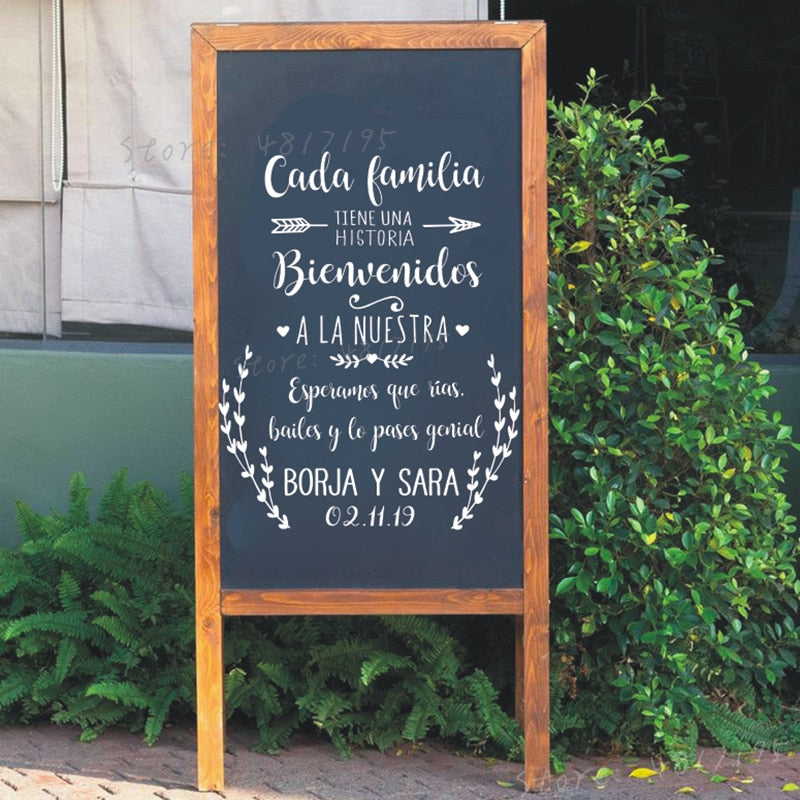 store: 4817195
Cada familia
TIENE UNA
HISTORIA
Bienvenidos
A LA NUESTRA
store: 4817195
Esperamos que rías,
bailes y lo pases genial
BORJA Y SARA
02.11.19
store: 4817195